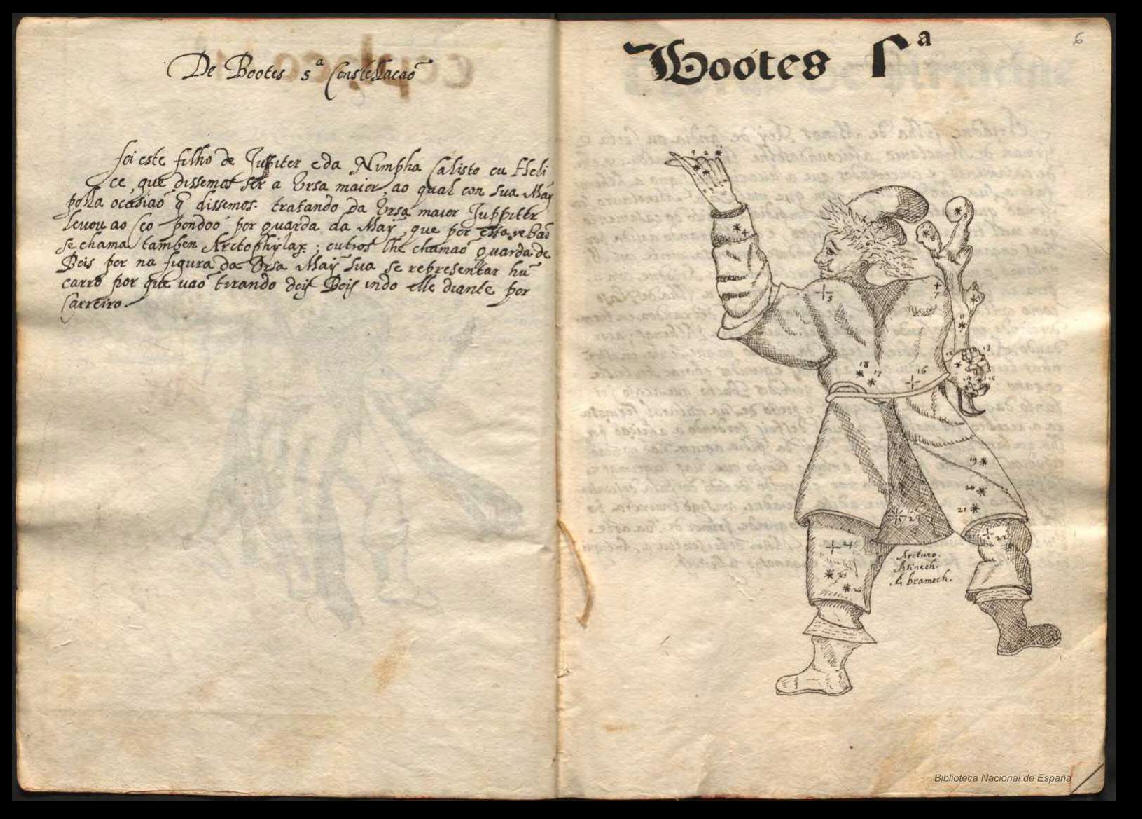 De Bootes 5ª Constellacaõ
foi este filho de Juppiter e da Nimpha Calisto ou Heli
ce que dissemos ser a Ursa maior, ao qual con sua Maỹ
polla ocasiaõ q̃ dissemos tratando da Ursa maior Juppiter
levou ao Ceo pondoo por guarda da Maỹ, que por essa rezaõ
se chama tambem Arctophylax; outros lhe chamaõ guarda de
Bois por na figura da Ursa Maỹ sua se representar hũ
carro por que vaõ tirando dois Bois indo elle diante por
Carreiro.
Bootes 5ª
6
18
17
16
19
20
21
22
23
Arcturo.
Biblioteca Nacional de España